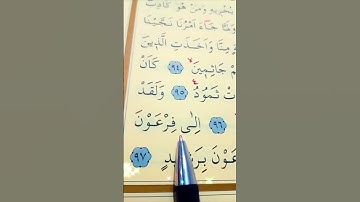 يُخْزِيهِ وَمَنْ هُوَ كَاذِبٌ
وَلَمَّا جَٓاءَ اَمْرُنَا نَجَّيْنَا
مِنَّا وَاَخَذَتِ الَّذِينَ
جَاثِمِينَ ﴿٩٤﴾ كَاَنْ
ثَمُودُ ﴿٩٥﴾ وَلَقَدْ
﴿٩٦﴾ اِلٰى فِرْعَوْنَ
عَوْنَ ﴿٩٧﴾